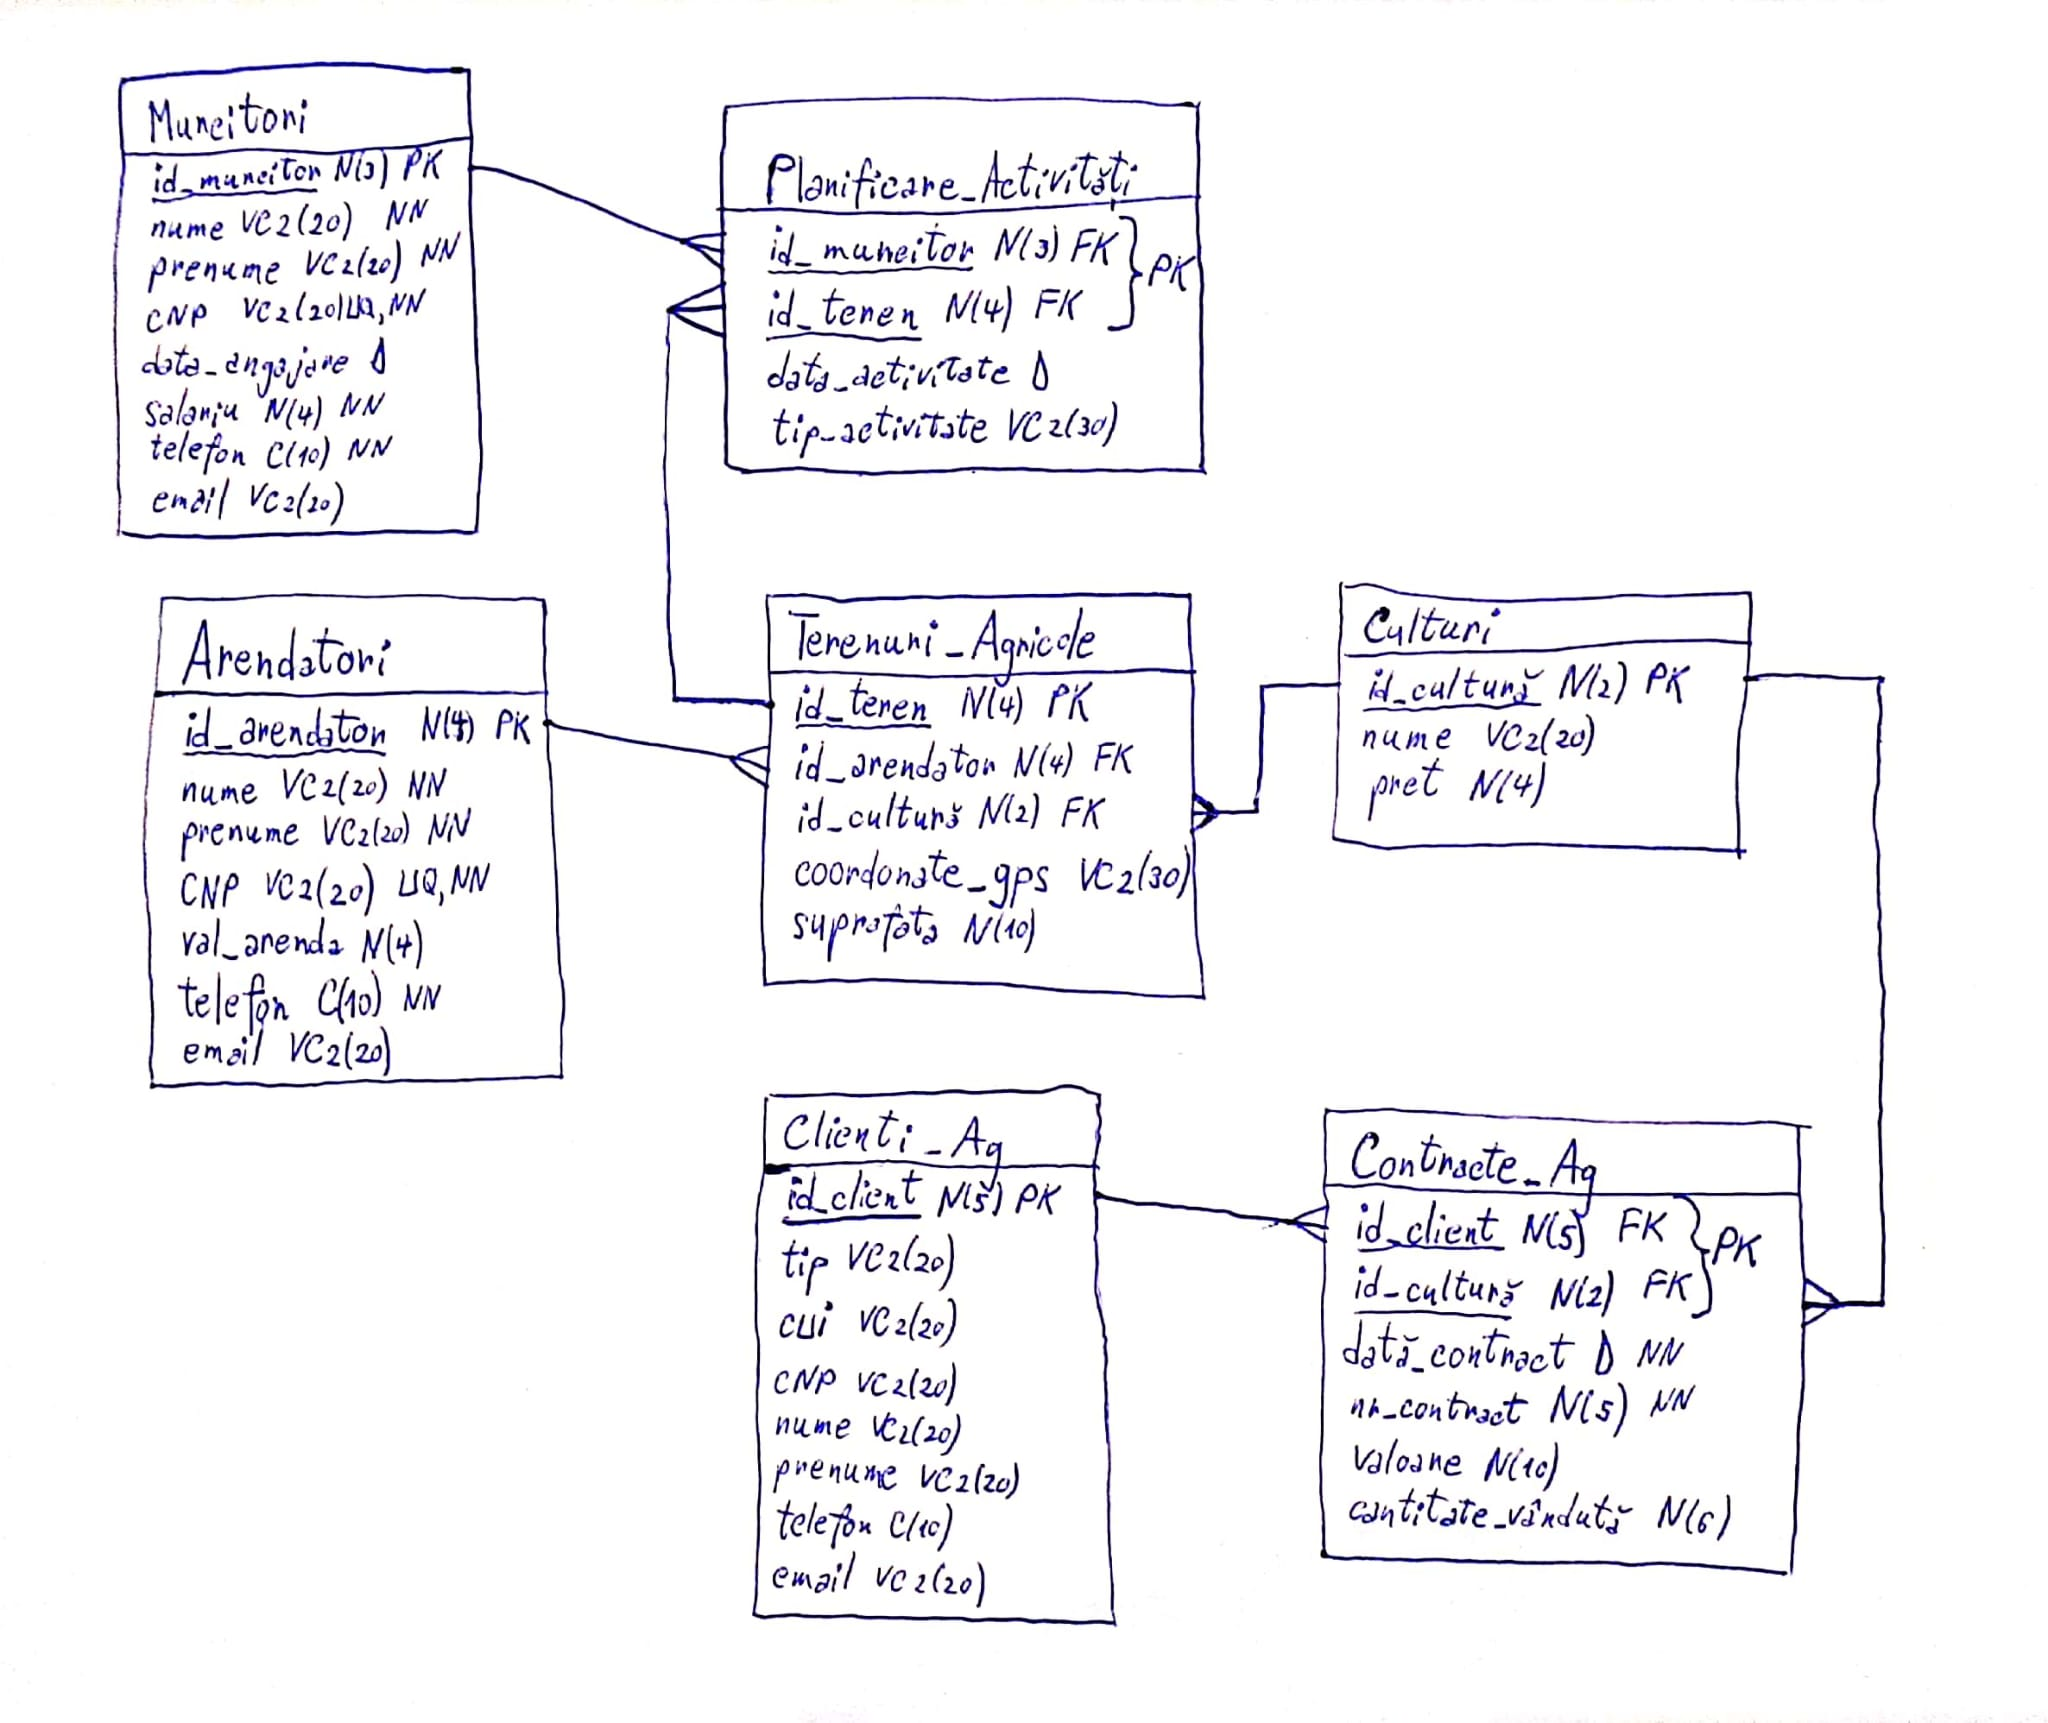 Muncitori
id_muncitor N(3) PK
nume VC2(20) NN
prenume VC2(20) NN
CNP VC2(20) UQ, NN
data_angajare D
salariu N(4) NN
telefon C(10) NN
email VC2(20)
Planificare_Activități
id_muncitor N(3) FK } PK
id_teren N(4) FK
data_activitate D
tip_activitate VC2(30)
Arendatori
id_arendator N(4) PK
nume VC2(20) NN
prenume VC2(20) NN
CNP VC2(20) UQ, NN
val_arenda N(4)
telefon C(10) NN
email VC2(20)
Terenuri_Agricole
id_teren N(4) PK
id_arendator N(4) FK
id_cultură N(2) FK
coordonate_gps VC2(30)
suprafata N(10)
Culturi
id_cultură N(2) PK
nume VC2(20)
pret N(4)
Clienti_Ag
id_client N(5) PK
tip VC2(20)
cui VC2(20)
CNP VC2(20)
nume VC2(20)
prenume VC2(20)
telefon C(10)
email VC2(20)
Contracte_Ag
id_client N(5) FK } PK
id_cultură N(2) FK
dată_contract D NN
nr_contract N(5) NN
valoare N(10)
cantitate_vândută N(6)